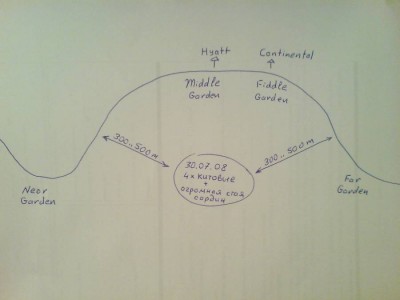 Hyatt
Continental
Middle
Garden
Fiddle
Garden
300..500м
300..500м
30.07.08
4x китовые
+
огромная стая
сардин
Near
Garden
Far
Garden